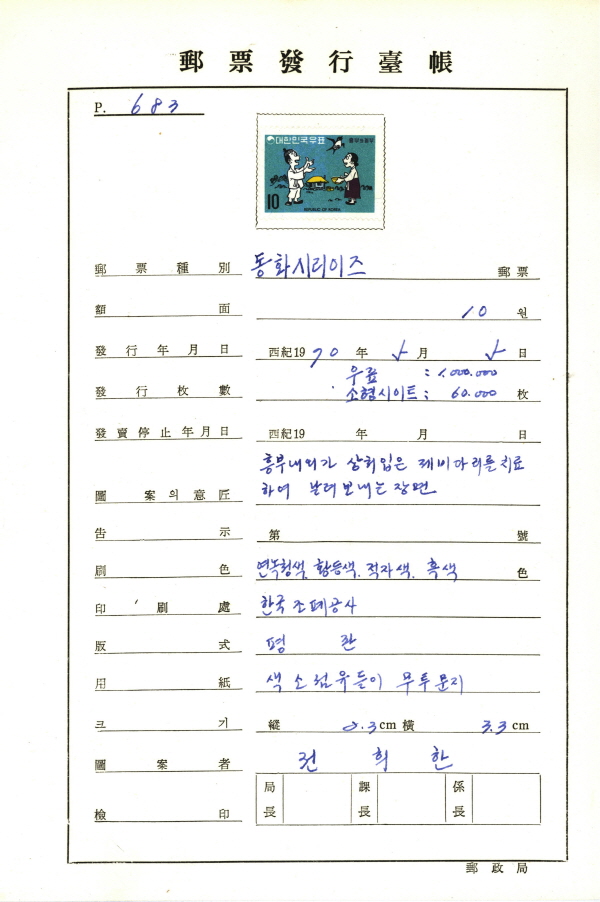 郵票發行臺帳
P. 683
대한민국우표
흥부와 놀부
10
REPUBLIC OF KOREA
郵票種別 동화시리이즈 郵票
額面 10 원
發行年月日 西紀1970年 5月 5日
우표 : 1,000.000
發行枚數 소형시이트 : 60.000 枚
發賣停止年月日 西紀19 年 月 日
흥부내외가 상처입은 제비다리를 치료
圖案의意匠 하여 날려보내는 장면
告示 第 號
刷色 연녹청색, 황등색, 적자색, 흑색 色
印刷處 한국조폐공사
版式 평판
用紙 색소섬유들이 무투문지
크기 縱 2.3cm 橫 3.3cm
圖案者 전희한
檢印 局長 課長 係長
郵政局